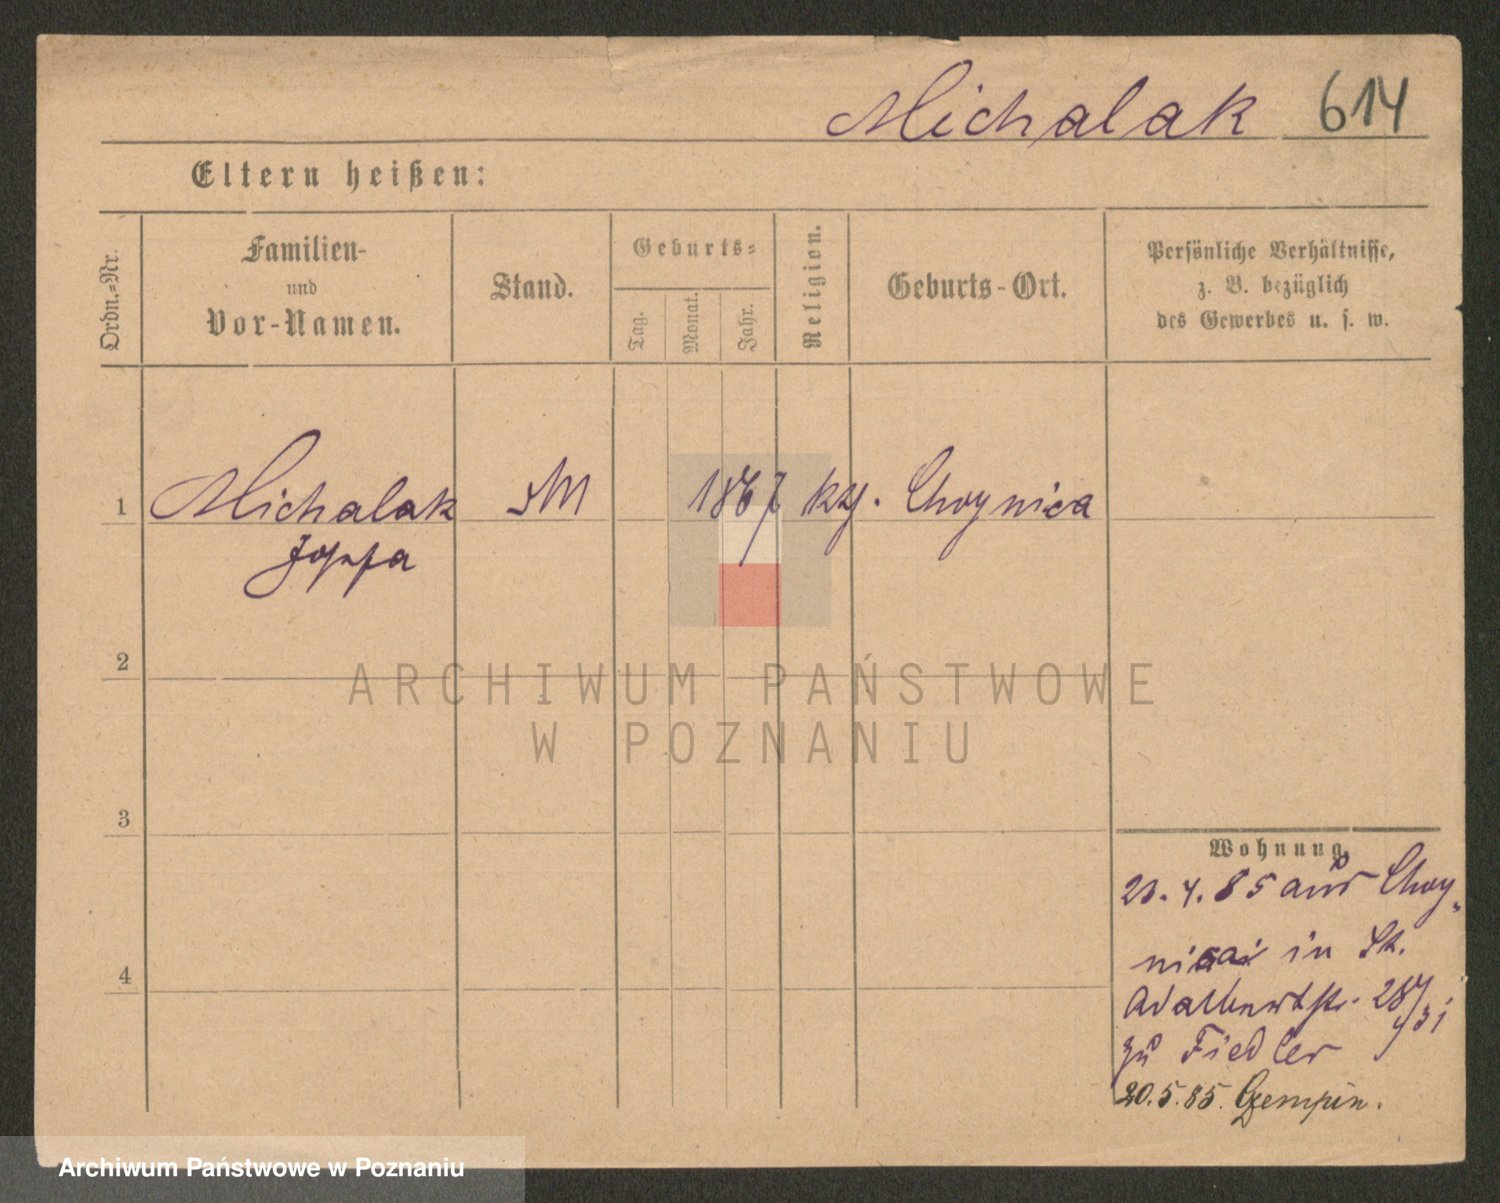 Michalak 614
Eltern heißen:
Ordn.-Nr.
Familien-
und
Vor-Namen.
Stand.
Geburts-
Tag.
Monat.
Jahr.
Religion.
Geburts-Ort.
Persönliche Verhältnisse,
z. B. bezüglich
des Gewerbes u. s. w.
1 Michalak M 1867 Choynica
Josefa
2
3
4
ARCHIWUM PAŃSTWOWE
W POZNANIU
Wohnung.
4. 85 aus Choy
in St.
Adalbertstr. 28
zu Fiedler
20.5.85. Czempin.
Archiwum Państwowe w Poznaniu